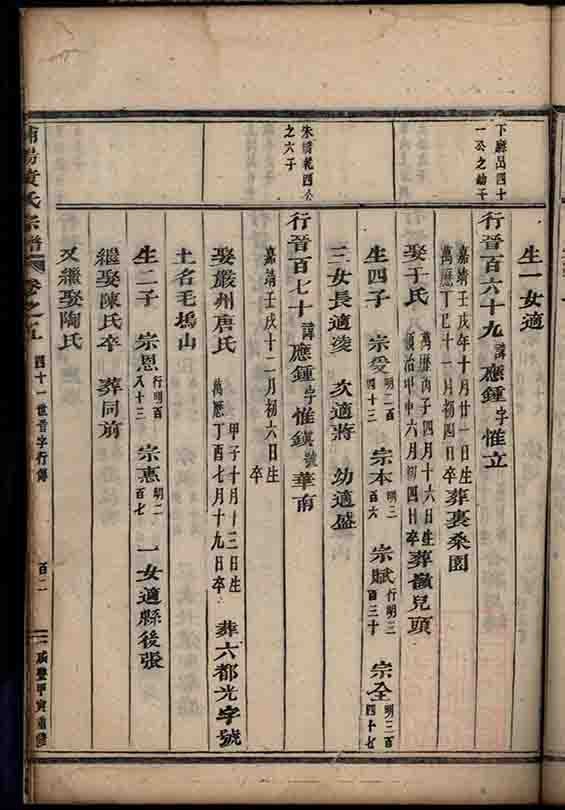 下廊昷四十
一公之幼子
生一女適
行晉百六十九 諱應鍾字惟立
嘉靖壬戌年十月廿一日生
萬歷丁巳十一月初四日卒 葬裏桑園
娶于氏 萬歷丙子四月十六日生
順治甲申六月初四日卒 葬嶺兒頭
生四子 宗受 明二百四十三 宗本 明三百六 宗賦 行明三百三十 宗全 明三百四十七
三女長適淩 次適蔣 幼適盛
朱橋乾四公
之六子
行晉百七十 諱應鍾字惟鎮號華南
嘉靖壬戌十二月初六日生
卒
娶嚴州唐氏 甲子十月十三日生
萬歷丁酉七月十九日卒 葬六都光字號
土名毛塢山
生二子 宗恩 行明百八十三 宗惠 明二百七 一女適縣後張
繼娶陳氏卒 葬同前
又繼娶陶氏
黃氏宗譜 卷之五 四十一世晉字行傳 百二 咸豐甲寅重修